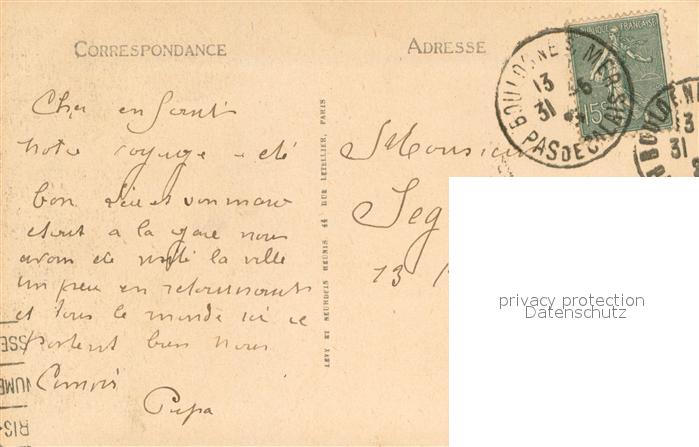 CORRESPONDANCE
ADRESSE
REPUBLIQUE FRANÇAISE
15c
BOULOGNE S. MER
13
31
PAS DE CALAIS
BOULOGNE
13
31
Cher enfant
notre voyage a été
bon et son mari
etait a la gare nous
avons été visité la ville
un peu en retournant
et tous le monde ici ce
portent bien nous
Papa
Monsieur
Seg
13
LEVY ET NEURDEIN REUNIS, 44 RUE LETELLIER, PARIS
privacy protection
Datenschutz